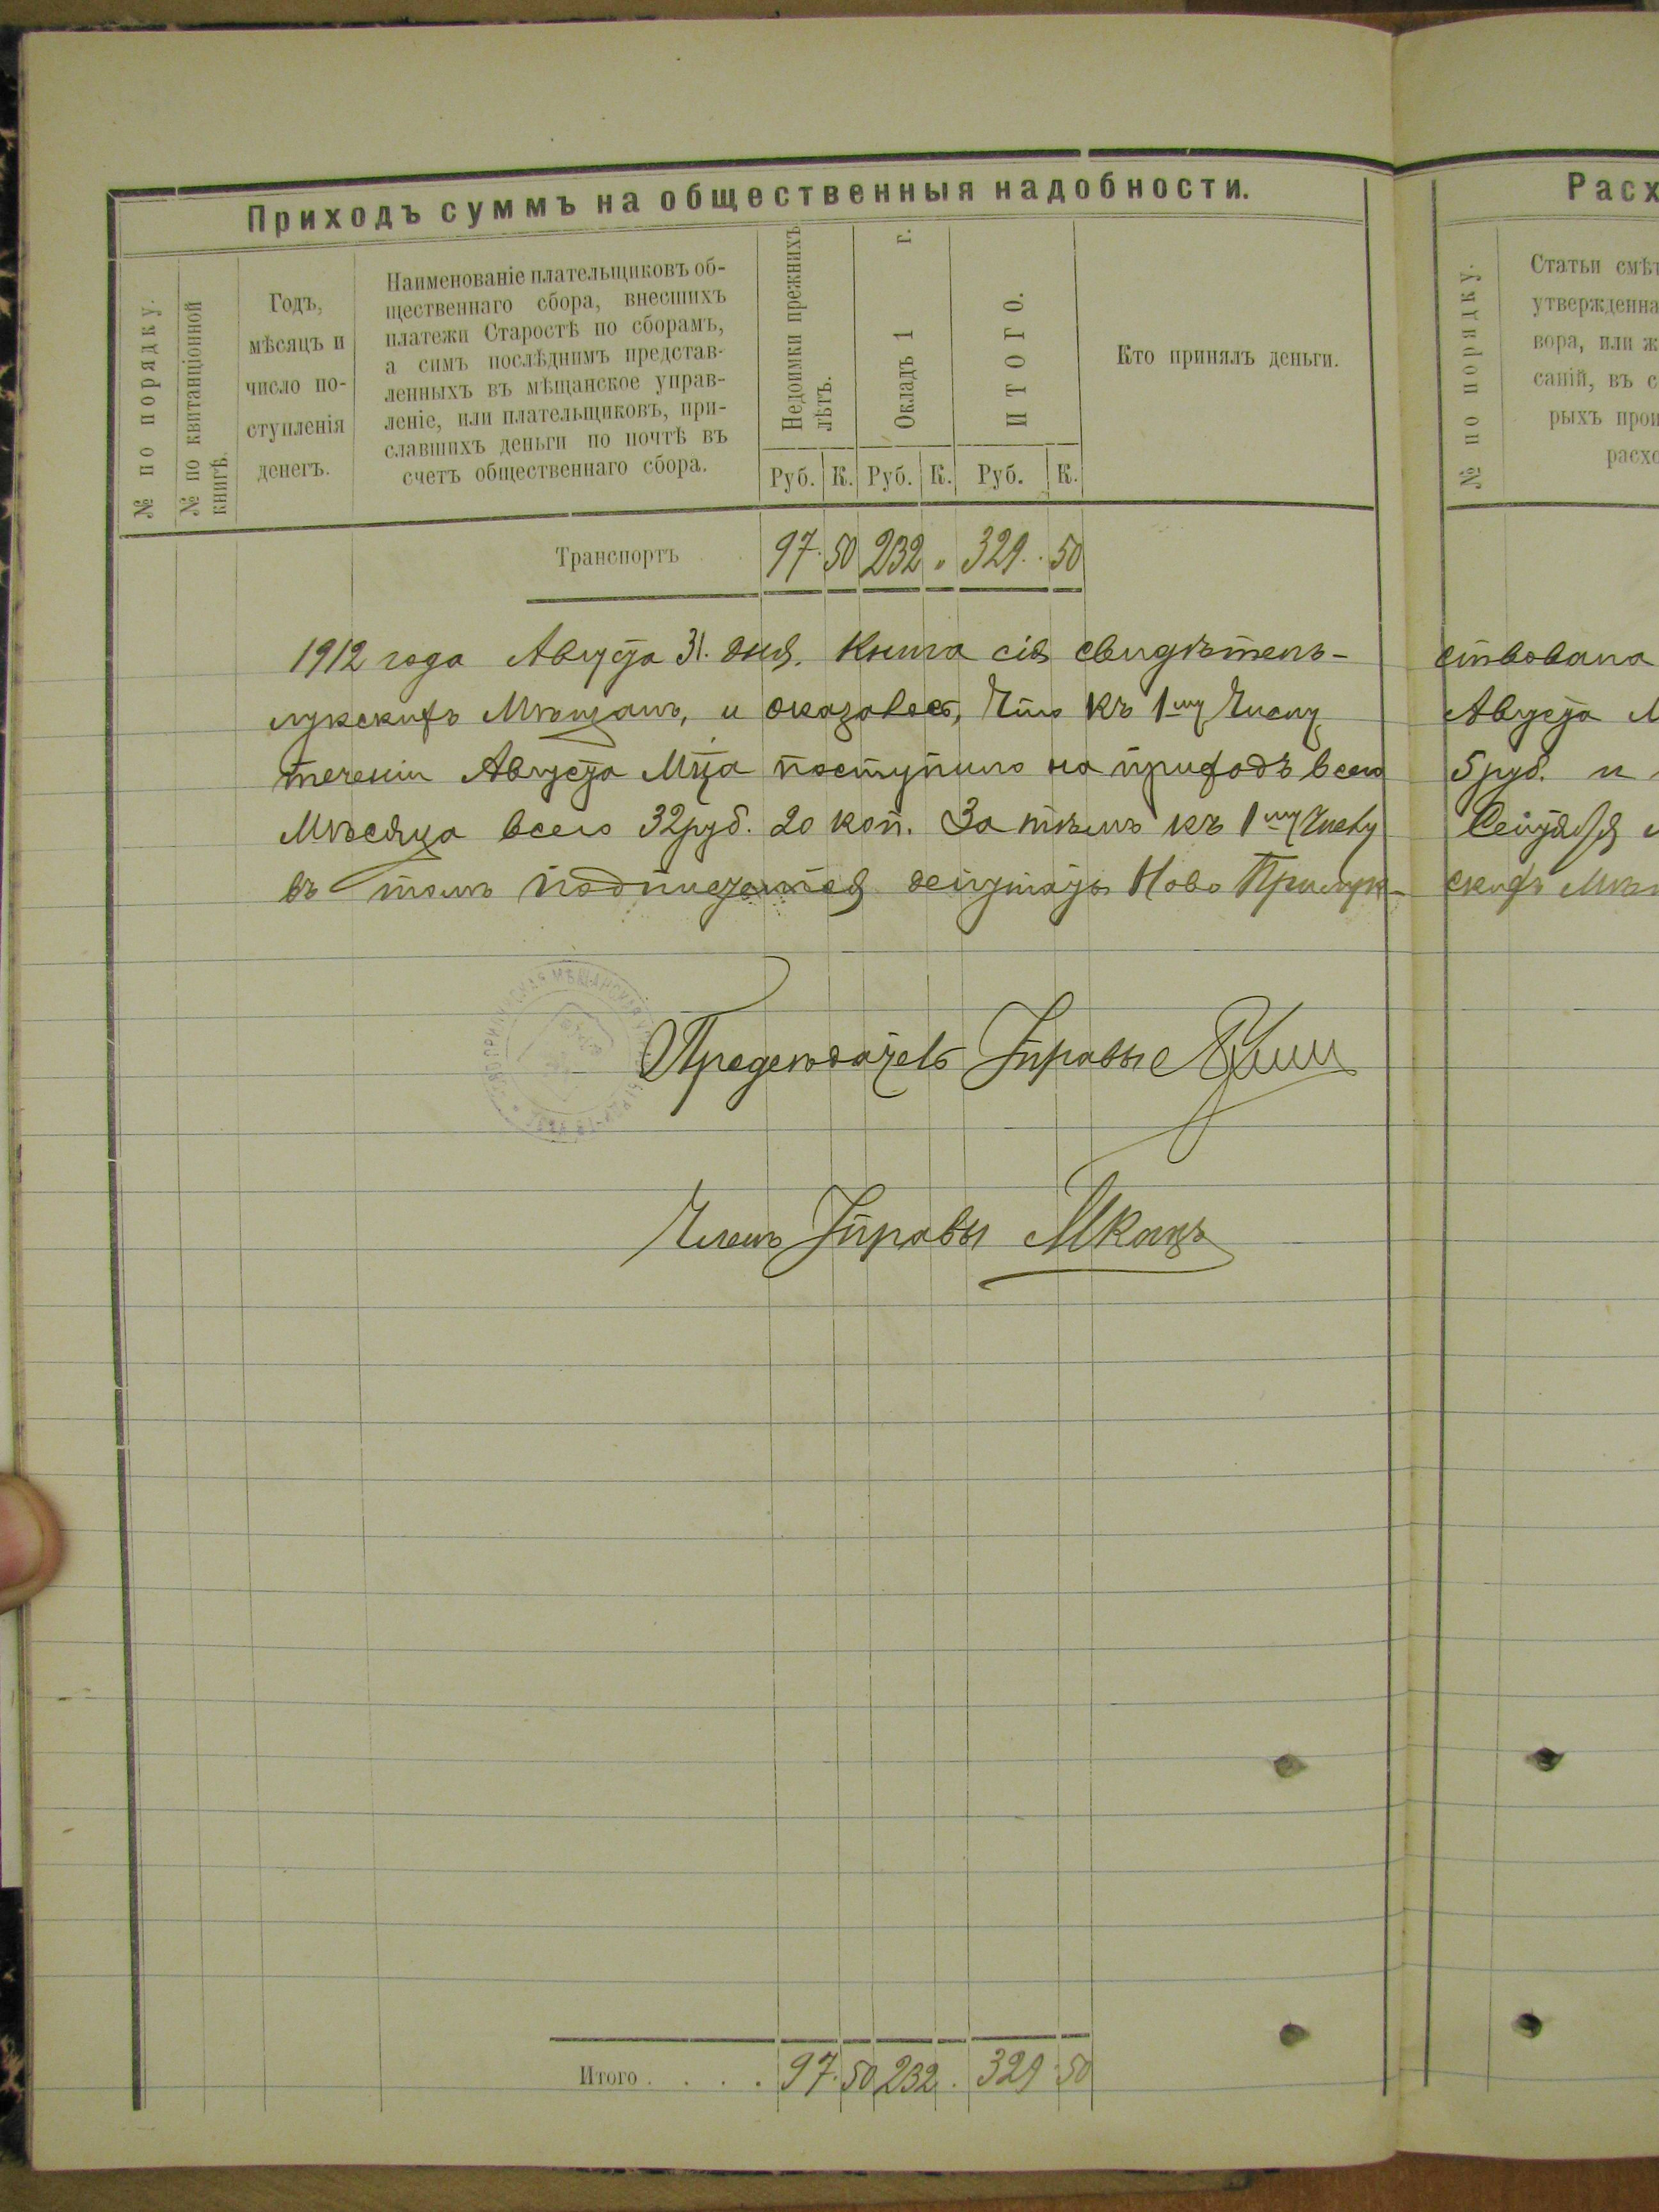 Приходъ суммъ на общественныя надобности.
№ по порядку.
№ по квитанціонной
книгѣ.
Годъ,
мѣсяцъ и
число по-
ступленія
денегъ.
Наименованіе плательщиковъ об-
щественнаго сбора, внесшихъ
платежи Старостѣ по сборамъ,
а симъ послѣднимъ представ-
ленныхъ въ мѣщанское управ-
леніе, или плательщиковъ, при-
славшихъ деньги по почтѣ въ
счетъ общественнаго сбора.
Недоимки прежнихъ
лѣтъ.
Окладъ 1 г.
ИТОГО.
Руб. К. Руб. К. Руб. К.
Кто принялъ деньги.
Транспортъ 97. 50 232 " 329. 50
1912 года Августа 31. дня. Книга сія свидѣтель-
лукскихъ Мѣщанъ, и оказалось, что къ 1му Числу
теченіи Августа Мца поступило на приходъ всего
Мѣсяца всего 32 руб. 20 коп. За тѣмъ къ 1му Числу
въ томъ подписуемся депутаты Ново Прилук-
Предсѣдатель Управы
Членъ Управы МКацъ
Итого . . . . 97. 50 232 . 329. 50
Расх
№ по порядку.
Статьи смѣт
утвержденна
вора, или ж
саній, въ с
рыхъ прои
расхо
ствована
Августа М
5 руб. и
Сентября
скихъ Мѣщ